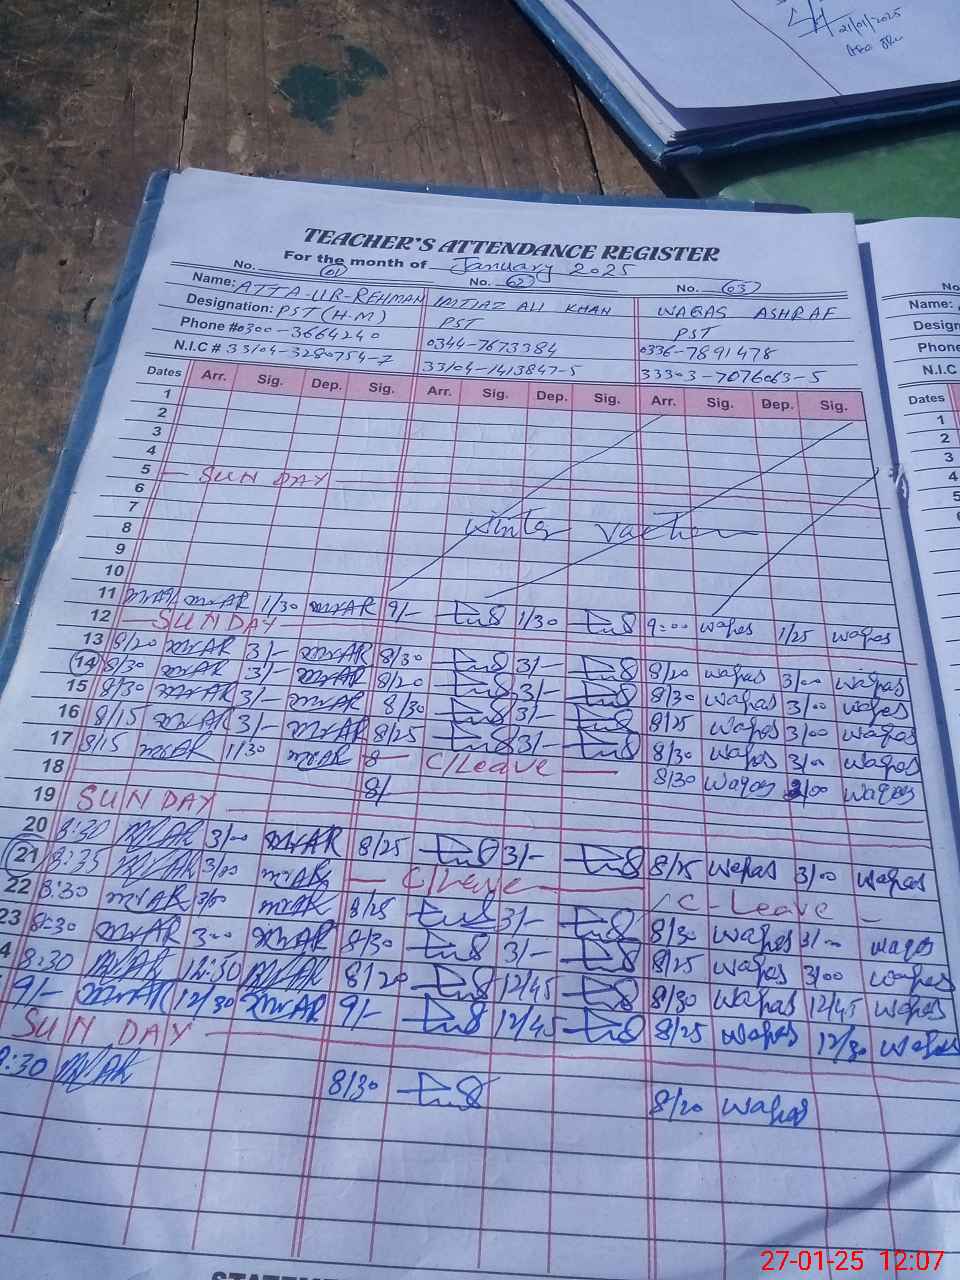 21/01/2025
TEACHER'S ATTENDANCE REGISTER
For the month of January 2025
No. 01 No. 02 No. 03
Name: ATTA-UR-REHMAN IMTIAZ ALI KHAN WAQAS ASHRAF
Designation: PST (H-M) PST PST
Phone #0300-3664240 0344-7673384 0336-7891478
N.I.C # 33104-3280754-7 33104-1413847-5 33303-7076063-5
Dates Arr. Sig. Dep. Sig. Arr. Sig. Dep. Sig. Arr. Sig. Dep. Sig.
1
2
3
4
5 SUNDAY
6
7
8 Winter Vaction
9
10
11 1/30 9/- 1/30 9:00 waqas 1/25 waqas
12 SUNDAY
13 8/20 3/- 8/30 3/- 8/20 waqas 3/00 waqas
14 8/30 3/- 8/20 3/- 8/30 waqas 3/00 waqas
15 8/30 3/- 8/30 3/- 8/25 waqas 3/00 waqas
16 8/15 3/- 8/25 3/- 8/30 waqas 3/00 waqas
17 8/15 1/30 8 C/Leave 8/30 waqas 3/00 waqas
18 8/
19 SUNDAY
20 8:30 3/00 8/25 3/- 8/25 waqas 3/00 waqas
21 8:35 3/00 C/Leave C-Leave
22 8:30 3/00 8/25 3/- 8/30 waqas 3/00 waqas
23 8:30 3:00 8/30 3/- 8/25 waqas 3/00 waqas
4 8:30 12:30 8/20 12/45 8/30 waqas 12/45 waqas
9/- 12/30 9/- 12/45 8/25 waqas 12/30 waqas
SUNDAY
8:30 8/30 8/20 waqas
No.
Name:
Design
Phone
N.I.C
Dates
1
2
3
4
5
STATEME
27-01-25 12:07